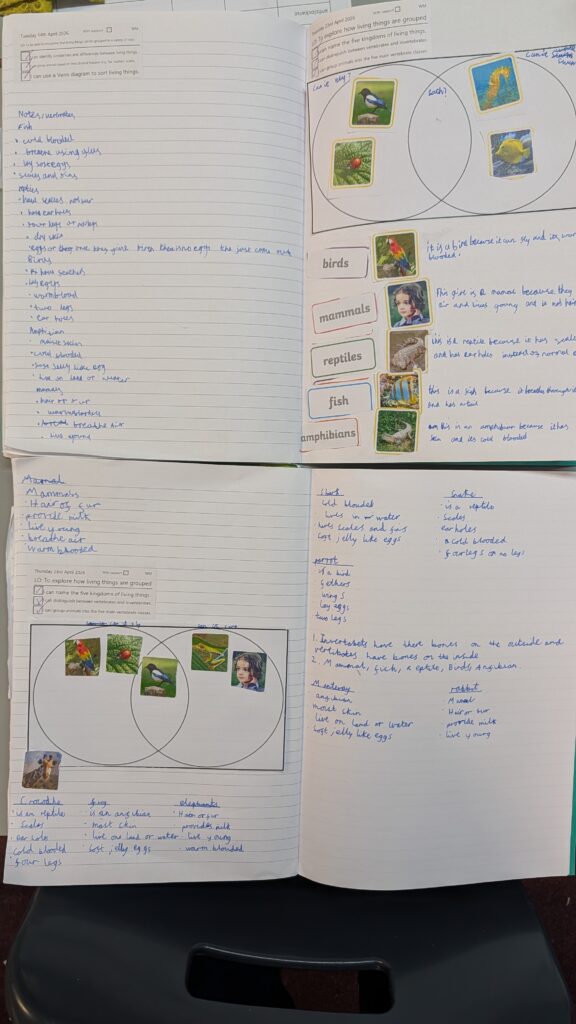 Tuesday 14th April 2026
I can identify similarities and differences between living things.
I can use a Venn diagram to sort living things.
Notes/vertebrates
Fish
cold blooded
breathe using gills
lay soft eggs
scales and fins
have ear holes
four legs or no legs
dry skin
Birds
lay eggs
warm blood
two legs
ear holes
cold blooded
live on land or water
hair or fur
breathe air
live young
Thursday 23rd April 2026
LO: To explore how living things are grouped
I can name the five kingdoms of living things.
I can distinguish between vertebrates and invertebrates.
I can group animals into the five main vertebrate classes.
can it fly?
both?
birds
it is a bird because it can fly and its warm
blooded.
mammals
This girl is a mamal because they
air and lives young and is not hair
reptiles
this is a reptile because it has scale
and has ear holes instead of normal e
fish
this is a fish because it breaths through
and has a tail
amphibians
this is an amphibian because it has
skin and its cold blooded
Mammal
Mammals
Hair or fur
provide milk
live young
breathe air
warm blooded
Thursday 23rd April 2026
LO: To explore how living things are grouped
I can name the five kingdoms of living things.
I can distinguish between vertebrates and invertebrates.
I can group animals into the five main vertebrate classes.
can it fly
Crocodile
is an reptile
Scales
ear hole
cold blooded
four legs
frog
is an angibian
moist skin
live one land or water
soft jelly eggs
elephants
Hair or fur
provides milk
live young
warm blooded
Shark
cold blooded
lives in or water
has scales and fins
soft jelly like eggs
Snake
is a reptile
Scales
ear holes
cold blooded
four legs or no legs
parrot
is a bird
fethers
wings
lay eggs
two legs
1. Invertabets have there bones on the outside and
vertibates have bones on the inside
2. Mammal, fish, reptile, Birds Angibian.
angibian
moist skin
live on land or water
soft jelly like eggs
rabbit
Hair or fur
provide milk
live young